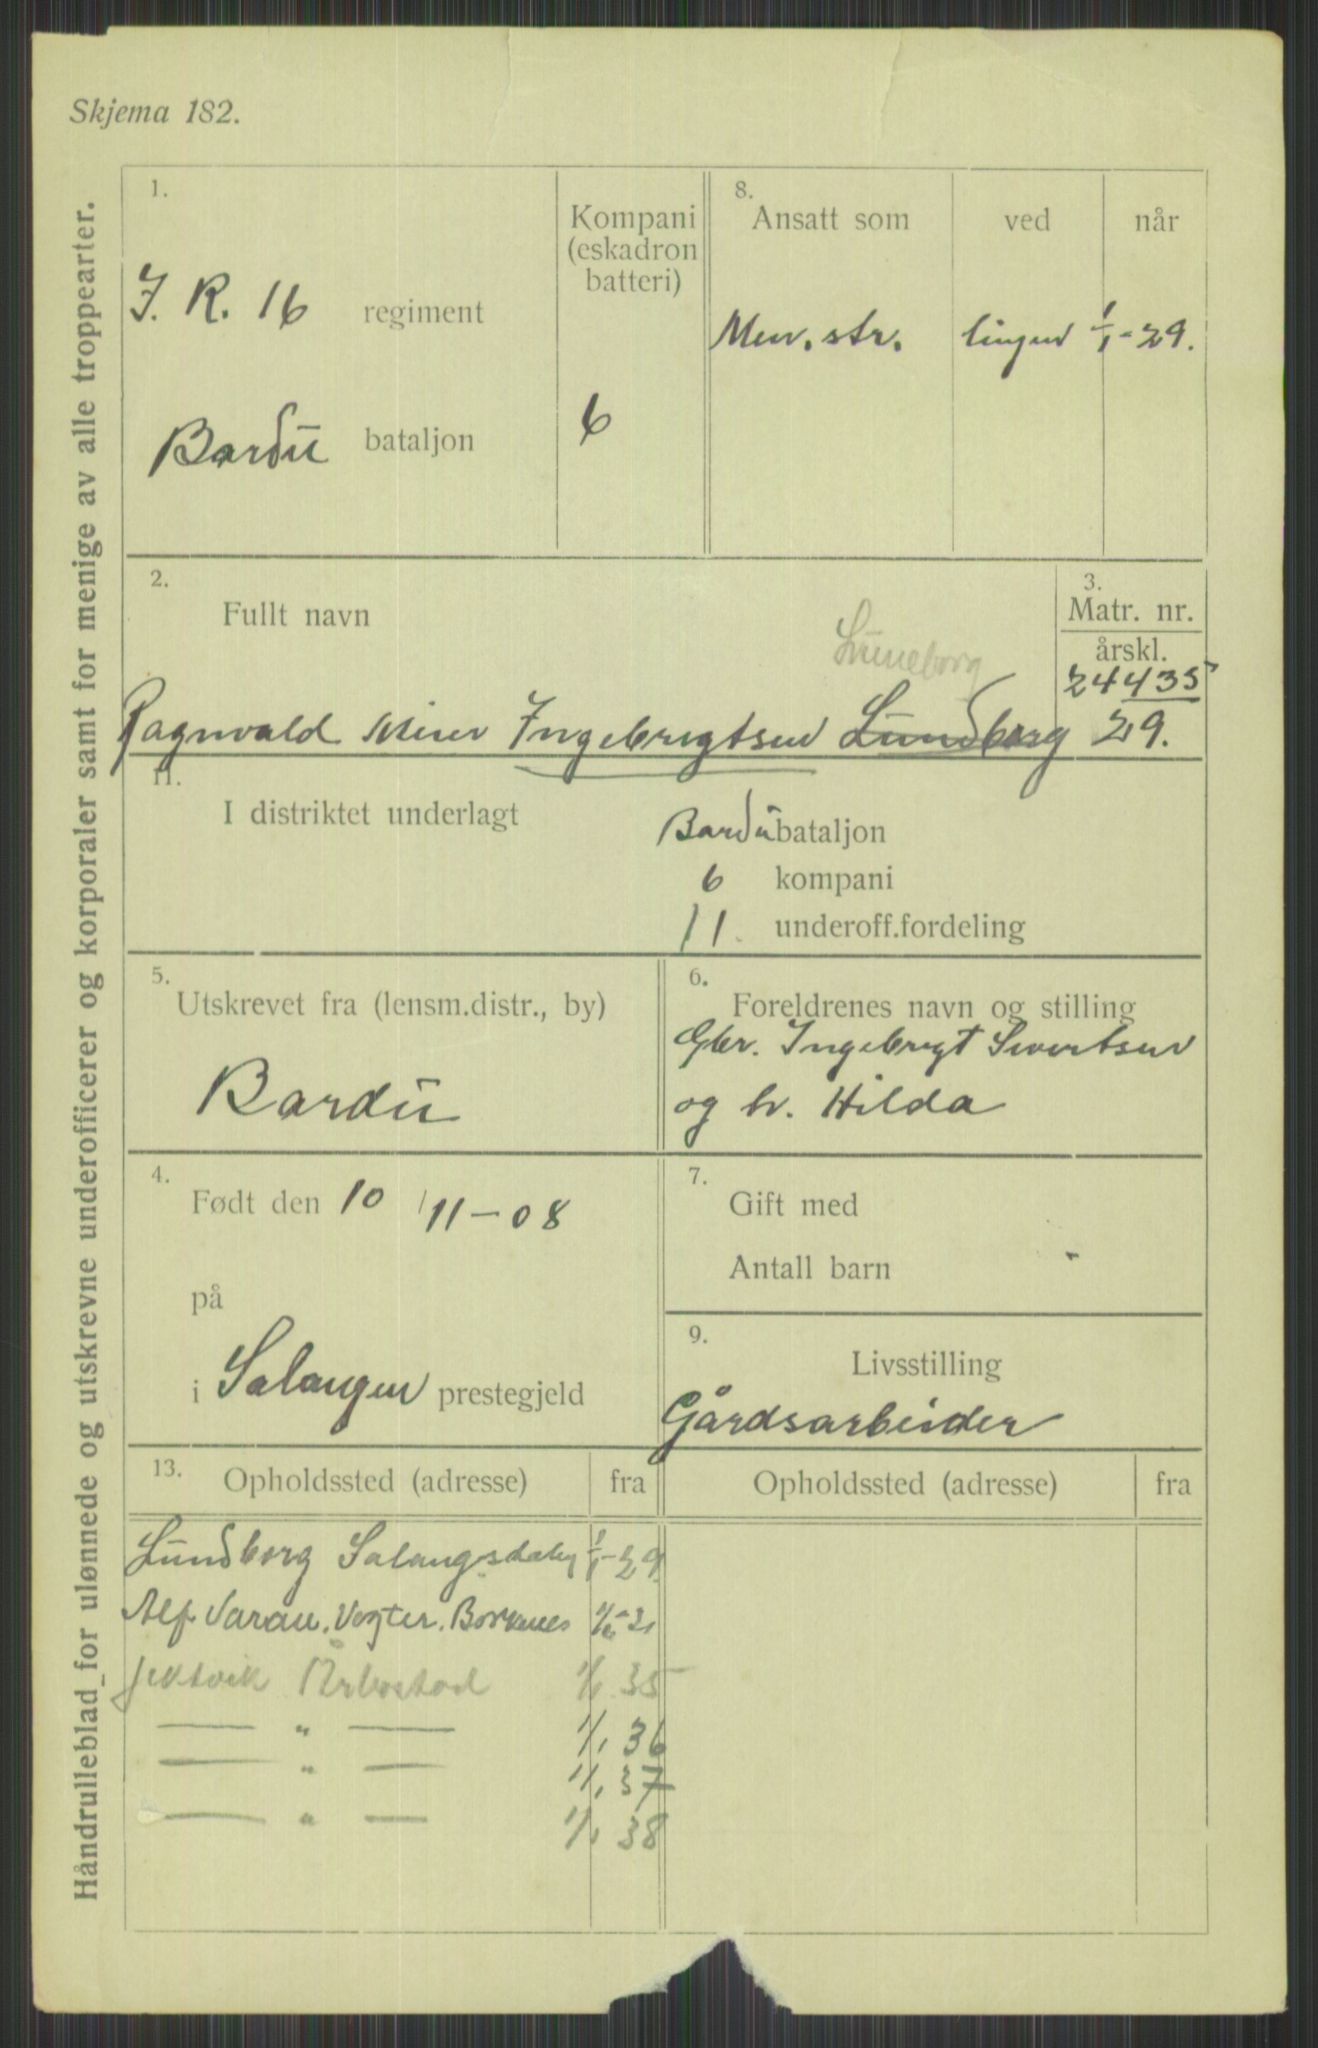 Skjema 182.
Håndrulleblad for ulønnede og utskrevne underofficerer og korporaler samt for menige av alle troppearter.
1.
Kompani
(eskadron
batteri)
8.
Ansatt som
ved
når
I. R. 16 regiment
Men. str.
linjen
1/1-29.
Bardu bataljon
6
2.
Fullt navn
3.
Matr. nr.
årskl.
Luneborg
24435
Ragnvald Ingebrigtsen Lundborg
29.
11.
I distriktet underlagt
Bardu bataljon
6 kompani
11. underoff.fordeling
5.
Utskrevet fra (lensm.distr., by)
Bardu
6.
Foreldrenes navn og stilling
Gbr. Ingebrigt Sivertsen
og h. Hilda
4.
Født den 10/11-08
på
i Salangen prestegjeld
7.
Gift med
Antall barn -
9.
Livsstilling
Gårdsarbeider
13.
Opholdssted (adresse)
fra
Opholdssted (adresse)
fra
Lundborg Salangsdalen 1/1-29
Alf Borkenes
Jektvik Årbostad 35
— " — 1/1 36
— " — 1/1 37
— " — 1/1 38